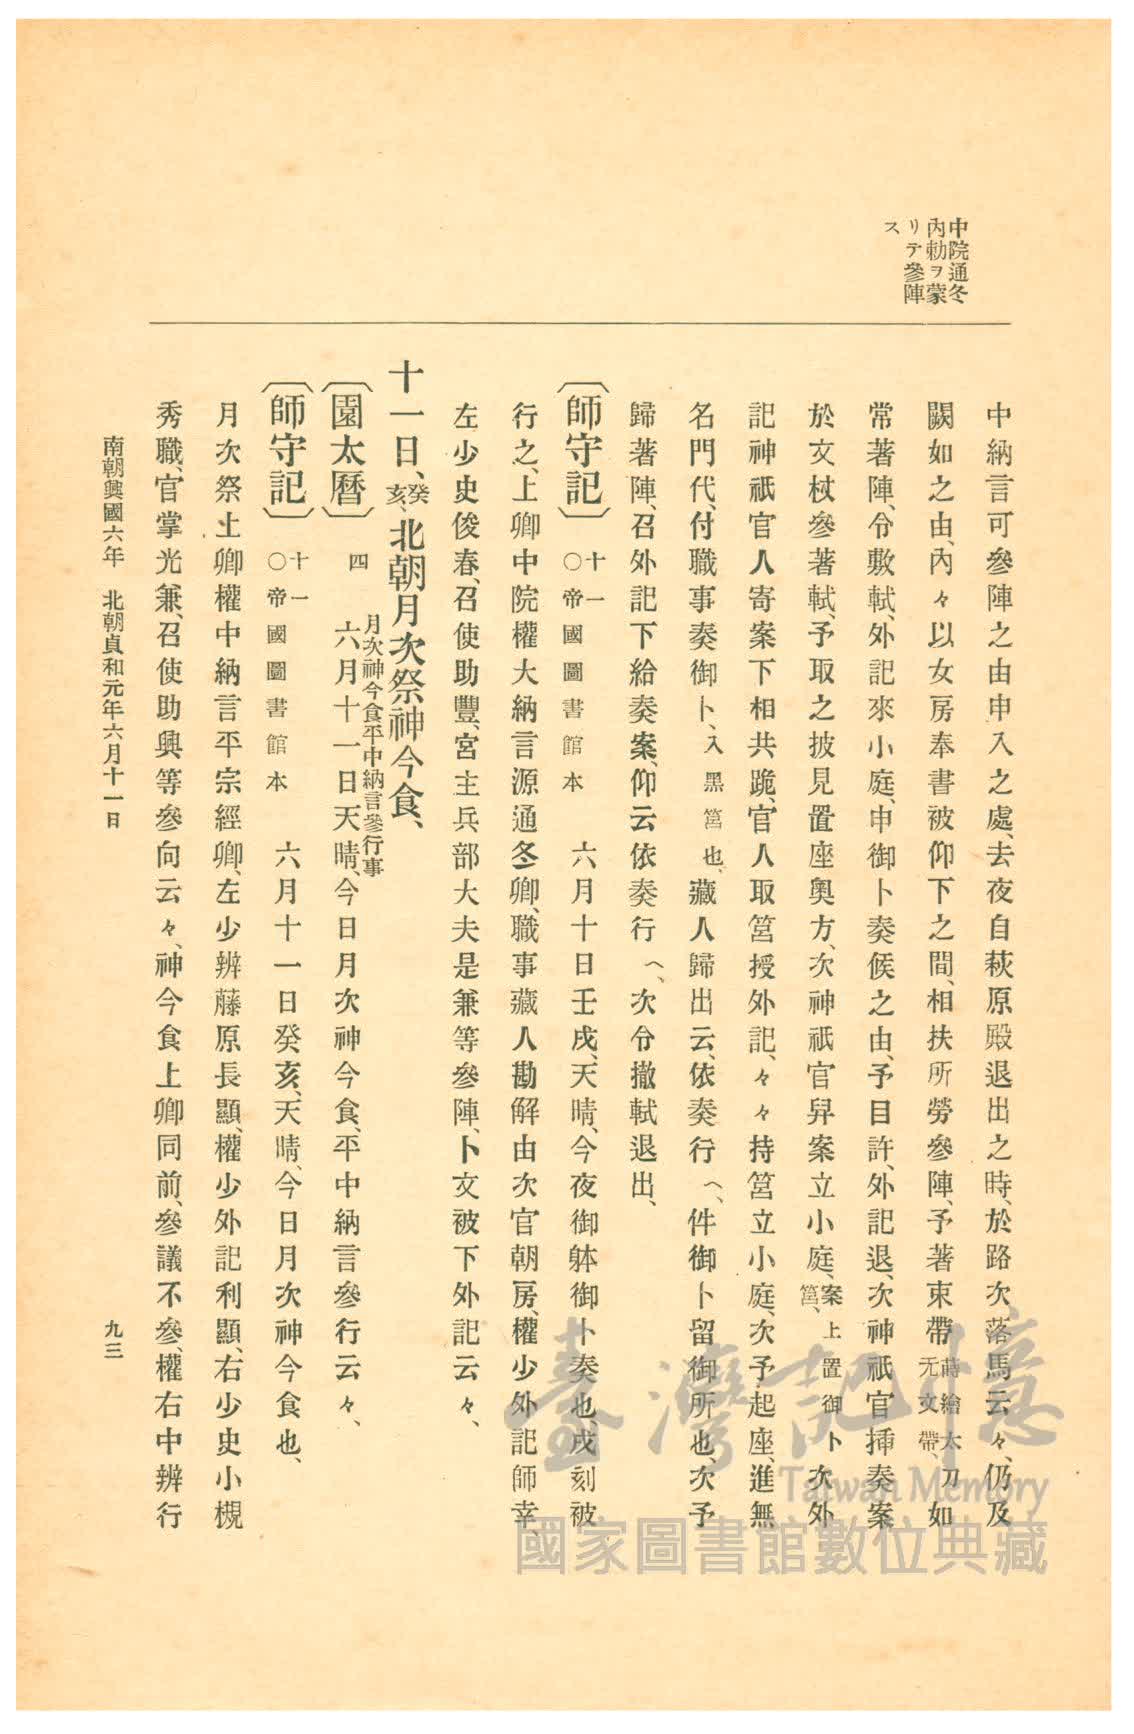 中院通冬
內勅ヲ蒙
リテ參陣
ス
中納言可參陣之由申入之處、去夜自萩原殿退出之時、於路次落馬云々、仍及
闕如之由、內々以女房奉書被仰下之間、相扶所勞參陣、予著束帶蒔繪太刀如无文帶、
常著陣、令敷軾、外記來小庭、申御卜奏候之由、予目許、外記退、次神祇官揷奏案
於文杖參著軾、予取之披見置座奧方、次神祇官舁案立小庭、案上置御卜筥、次外
記神祇官人寄案下相共跪、官人取筥授外記、々々持筥立小庭、次予起座、進無
名門代、付職事奏御卜、入黑筥也、藏人歸出云、依奏行ヘ、件御卜留御所也、次予
歸著陣、召外記下給奏案、仰云依奏行ヘ、次令撤軾退出、
〔師守記〕十一〇帝國圖書館本 六月十日壬戌、天晴、今夜御躰御卜奏也、戌刻被
行之、上卿中院權大納言源通冬卿、職事藏人勘解由次官朝房、權少外記師幸、
左少史俊春、召使助豐、宮主兵部大夫是兼等參陣、卜文被下外記云々、
十一日、癸亥、北朝月次祭神今食、
〔園太曆〕四 月次神今食平中納言參行事
六月十一日天晴、今日月次神今食、平中納言參行云々、
〔師守記〕十一〇帝國圖書館本 六月十一日癸亥、天晴、今日月次神今食也、
月次祭上卿權中納言平宗經卿、左少辨藤原長顯、權少外記利顯、右少史小槻
秀職、官掌光兼、召使助興等參向云々、神今食上卿同前、參議不參、權右中辨行
南朝興國六年 北朝貞和元年六月十一日
九三
臺灣記憶
Taiwan Memory
國家圖書館數位典藏